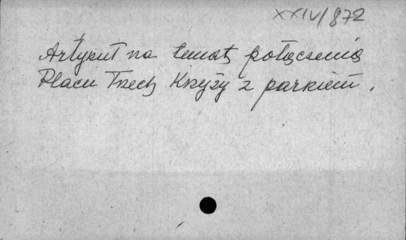 XXIV/872
Artykuł na temat połączenia
Placu Trzech Krzyży z parkiem.